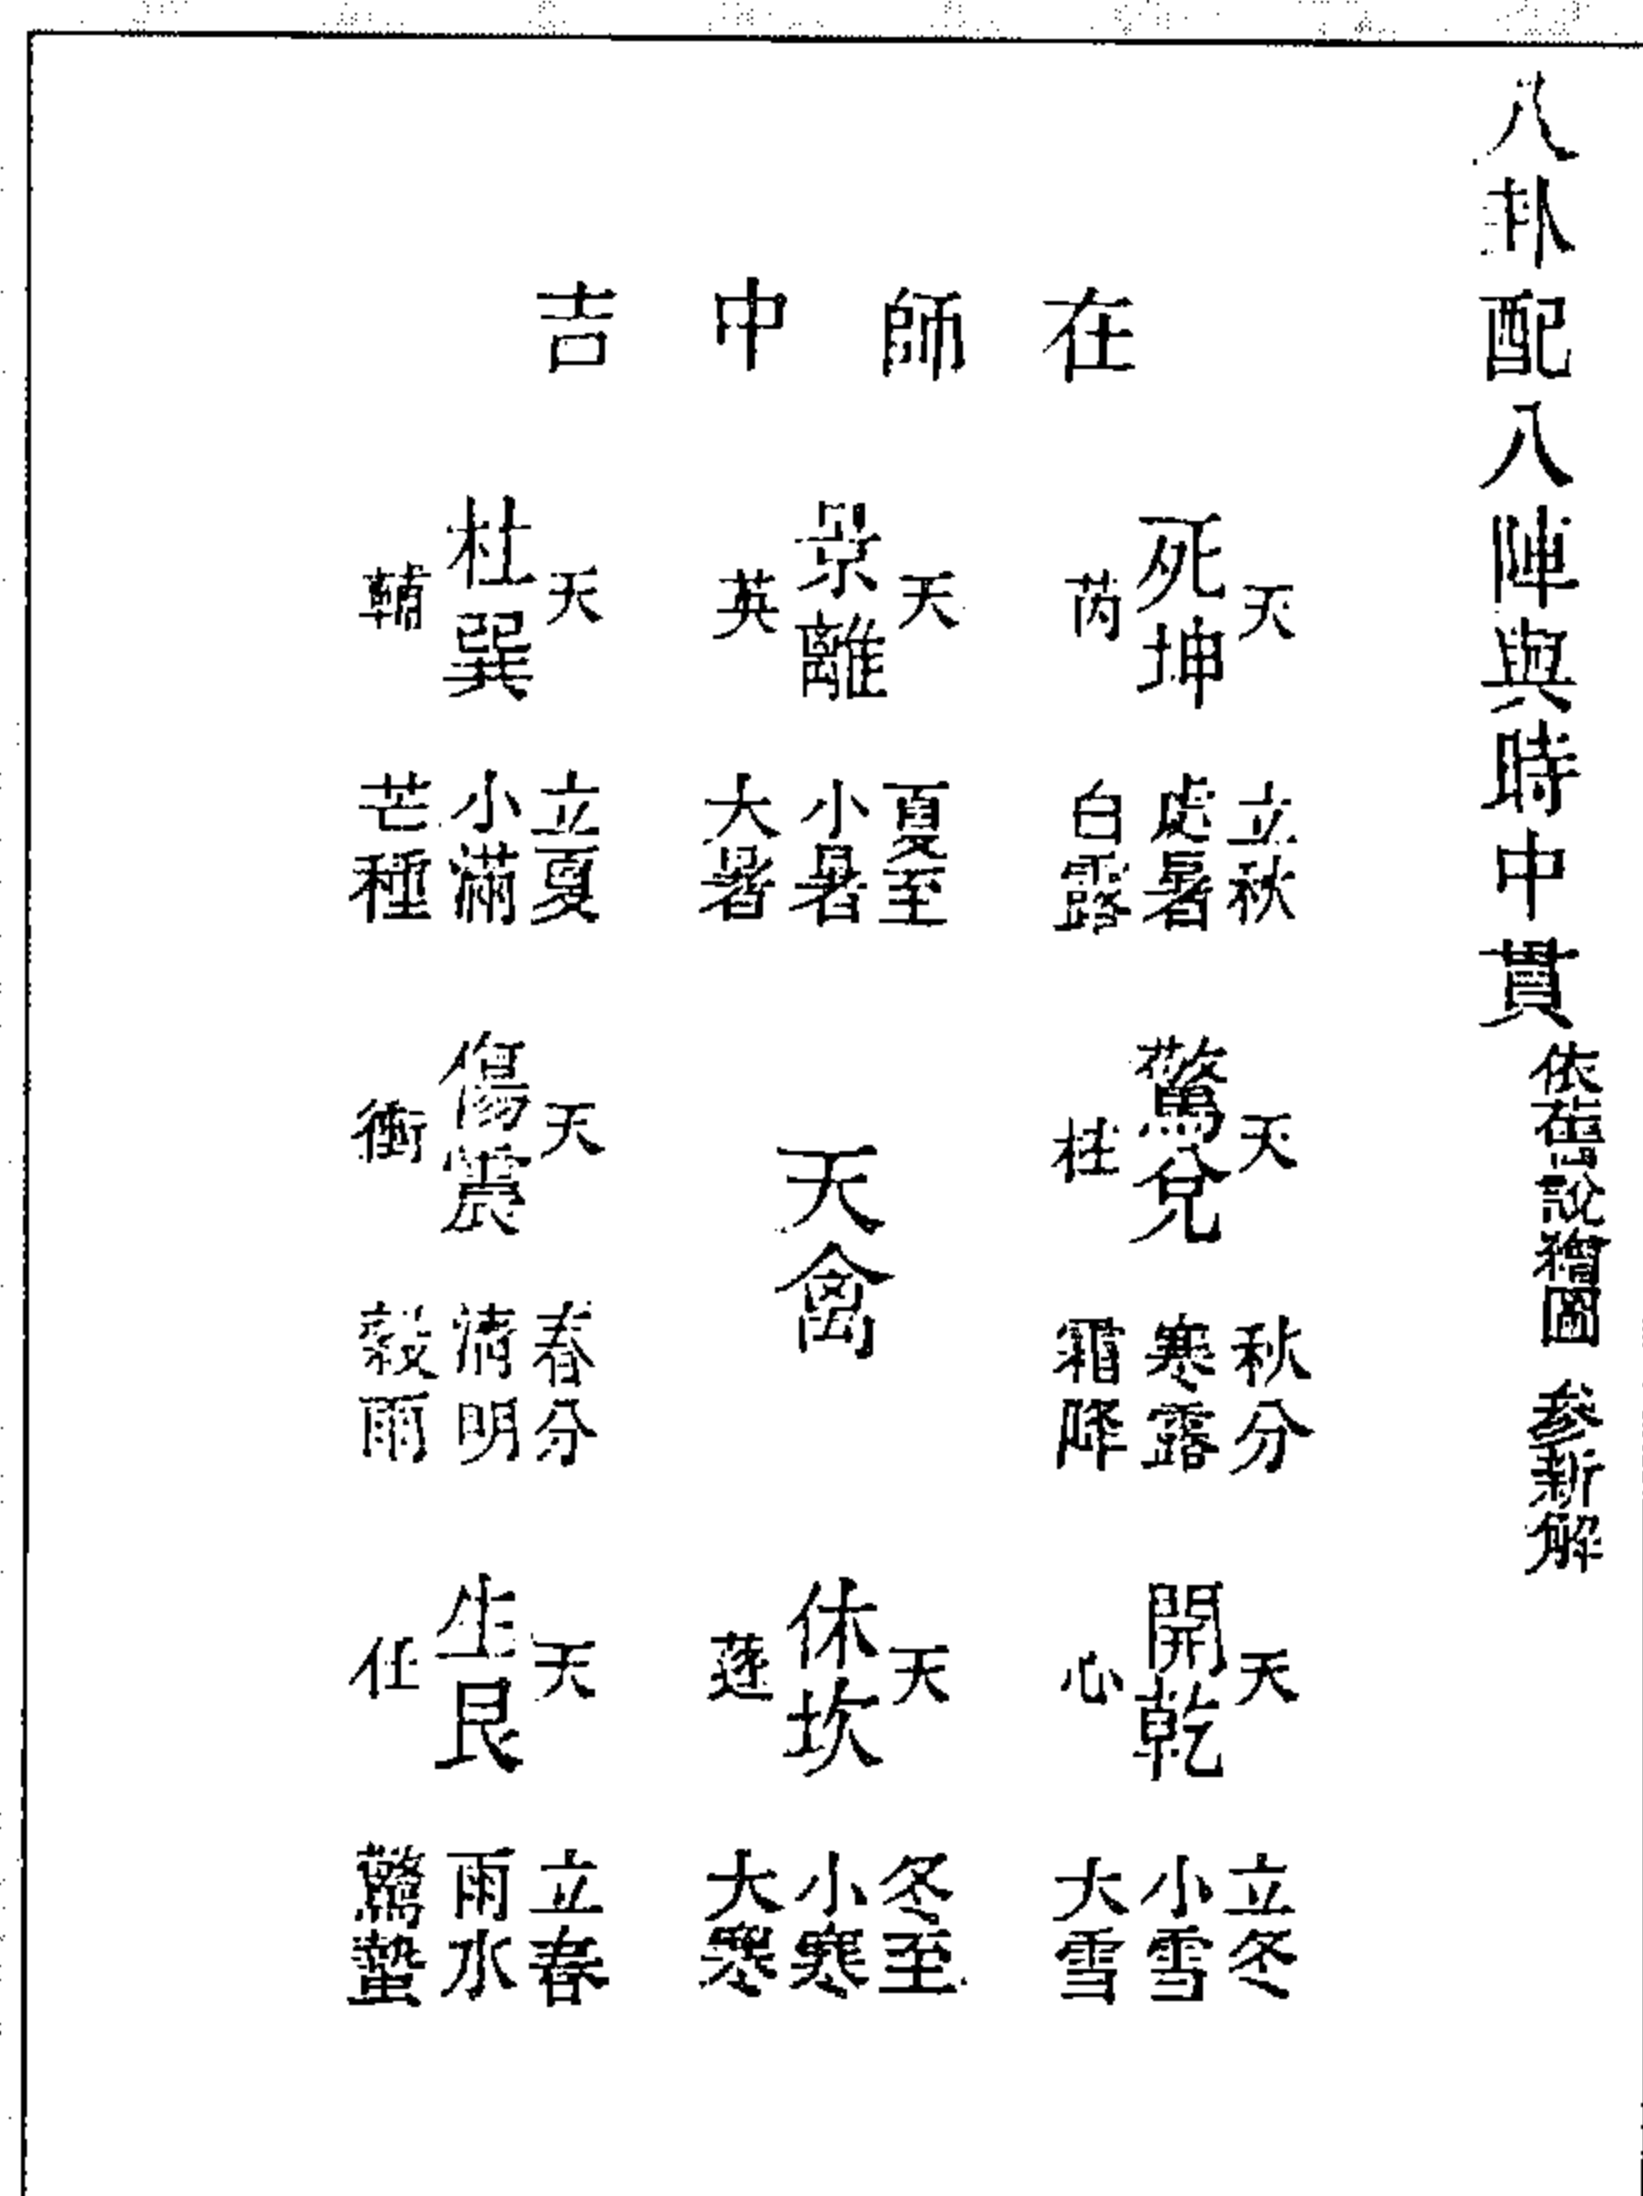 八卦配八陣與時中貫
依舊說繪圖 參新解
在師中吉
天芮
死坤
立秋
處暑
白露
天英
景離
夏至
小暑
大暑
天輔
杜巽
立夏
小滿
芒種
天柱
驚兌
秋分
寒露
霜降
天禽
天衝
傷震
春分
清明
穀雨
天心
開乾
立冬
小雪
大雪
天蓬
休坎
冬至
小寒
大寒
天任
生艮
立春
雨水
驚蟄